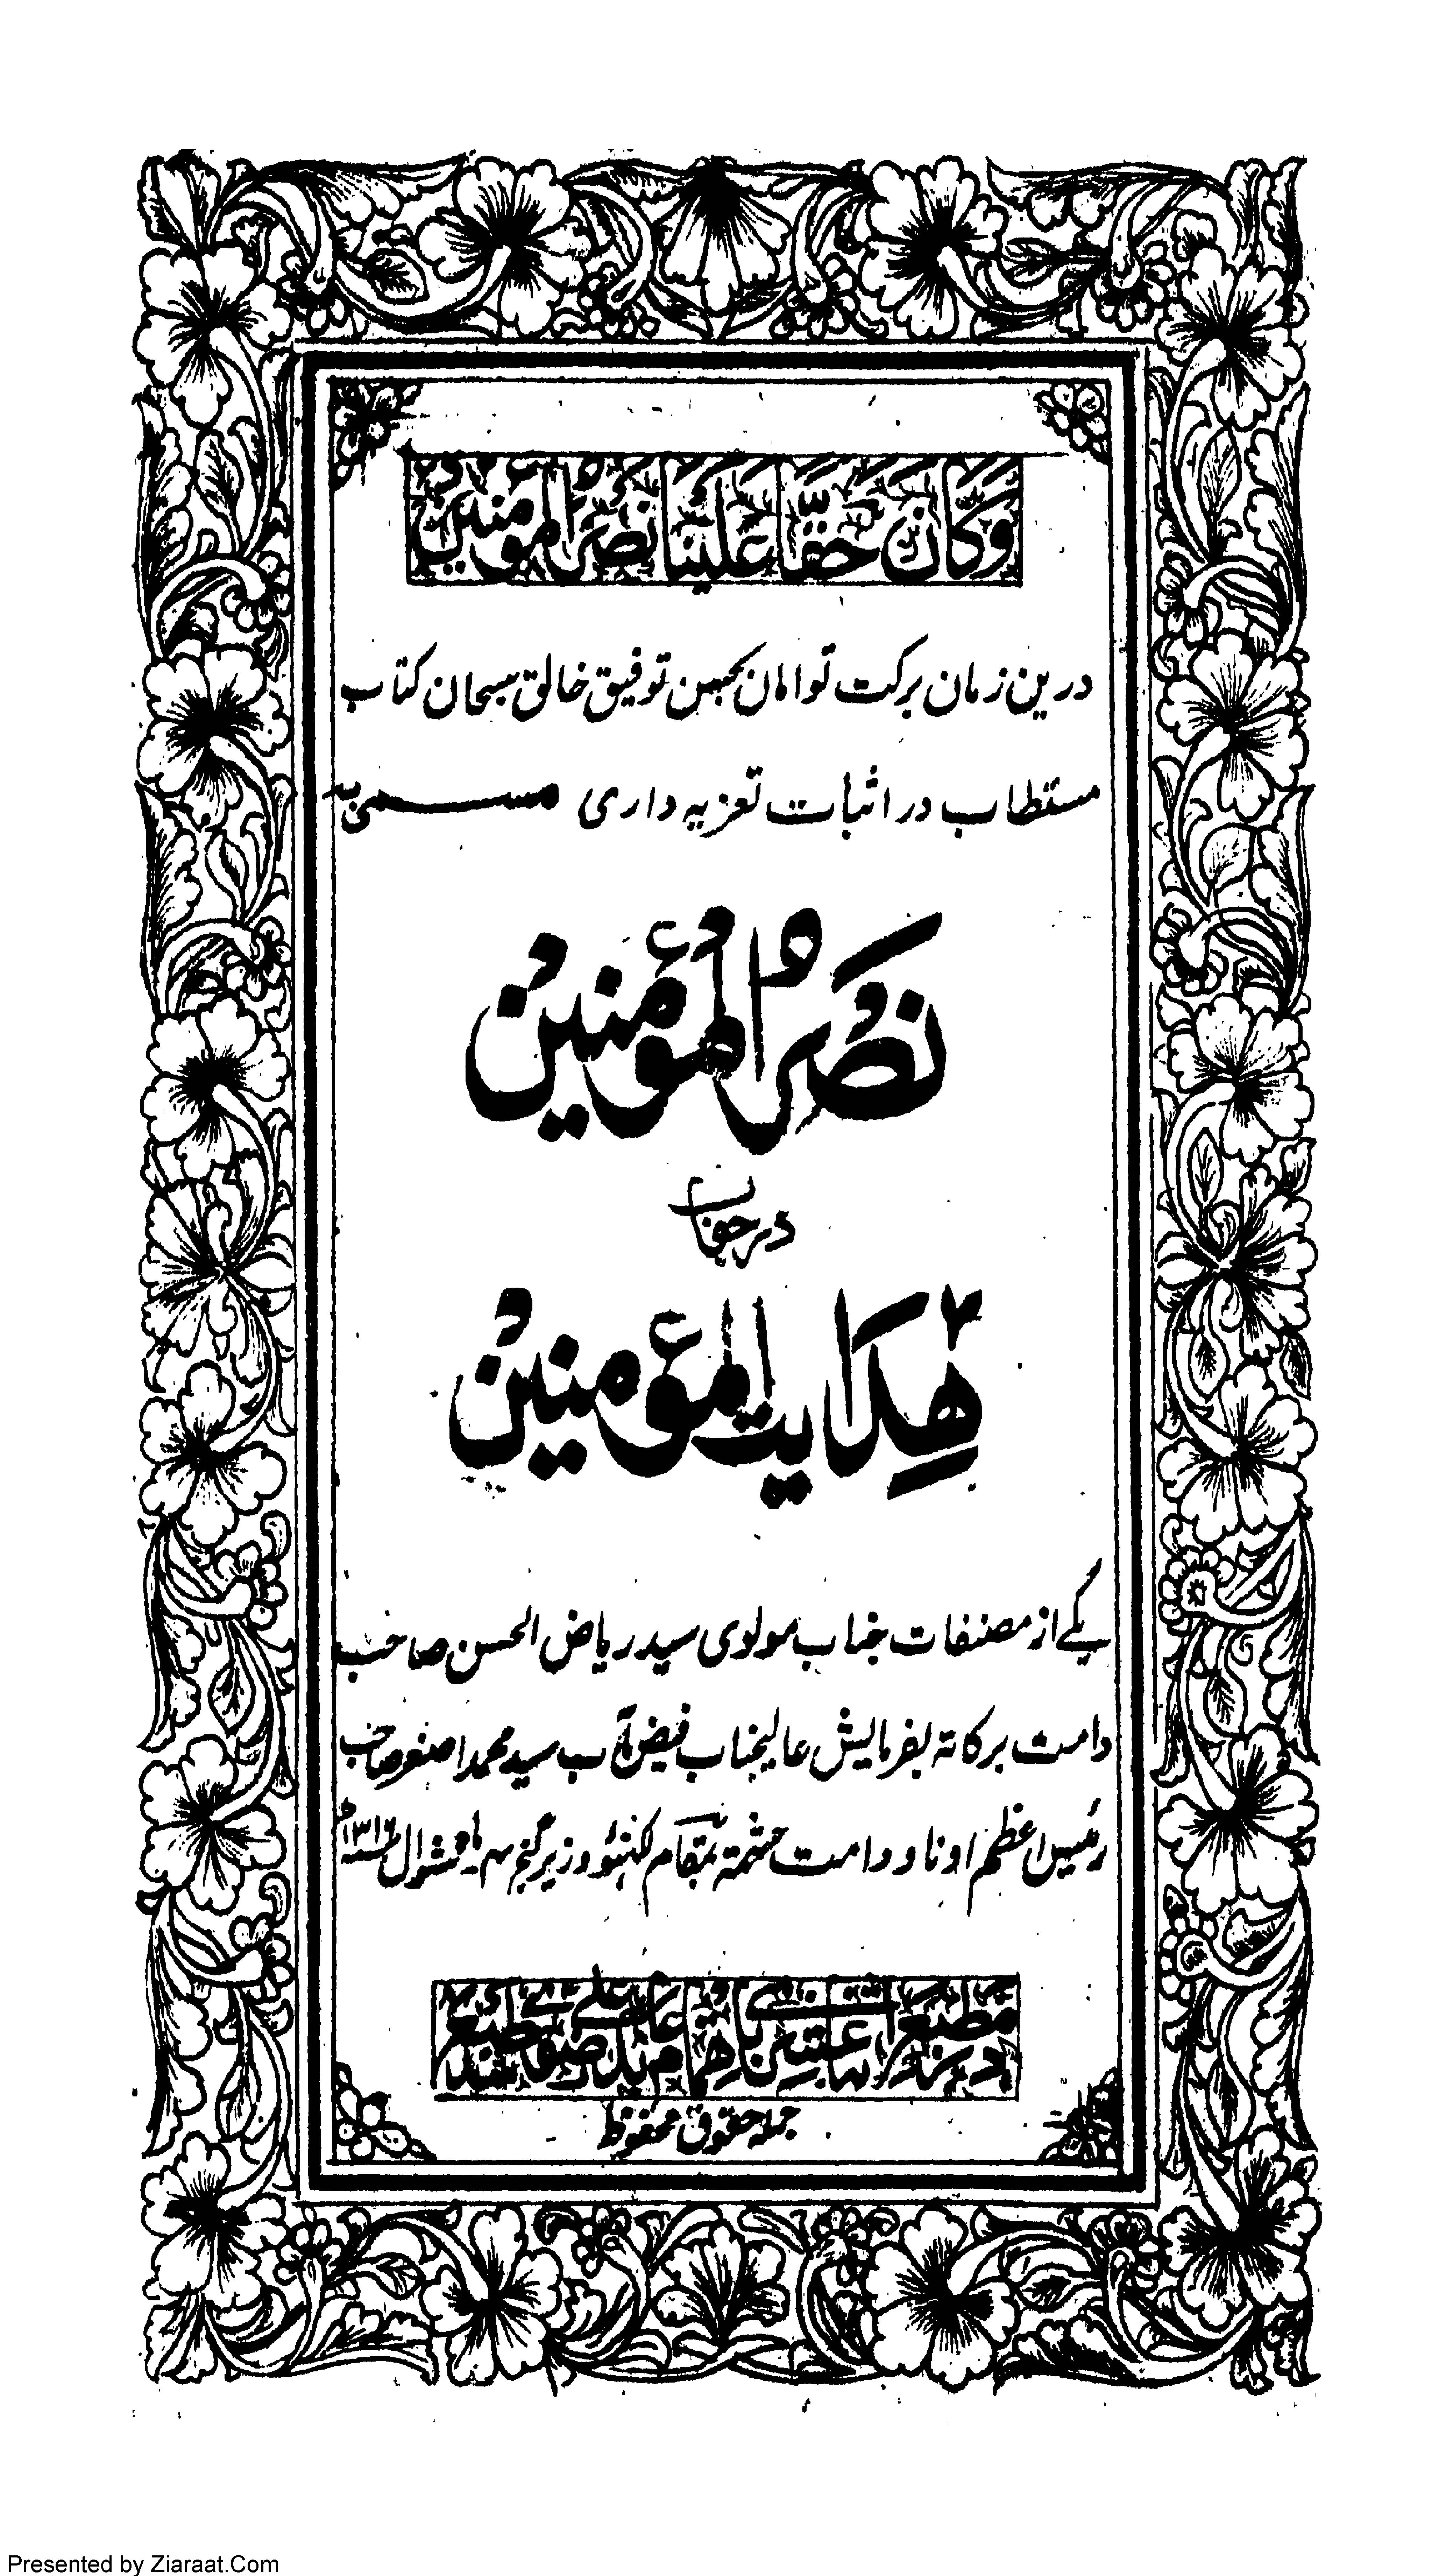 وَكَانَ حَقًّا عَلَيْنَا نَصْرُ الْمُؤْمِنِينَ
درین زمان برکت توامان بحسن توفیق خالق سبحان کتاب
مستطاب در اثبات تعزیه داری مسمی به
نَصْرُ الْمُؤْمِنِیْنَ
در جواب
هِدایت المؤمنین
یکے از مصنفات جناب مولوی سید ریاض الحسن صاحب
دامت برکاته بفرمایش عالیجناب فیض مآب سید محمد اصغر صاحب
رئیس اعظم اوناو دامت حشمتہ بمقام لکھنؤ وزیر گنج ماه شوال ۱۳۱۶
مطبع اثنا عشری
جمله حقوق محفوظ
Presented by Ziaraat.Com